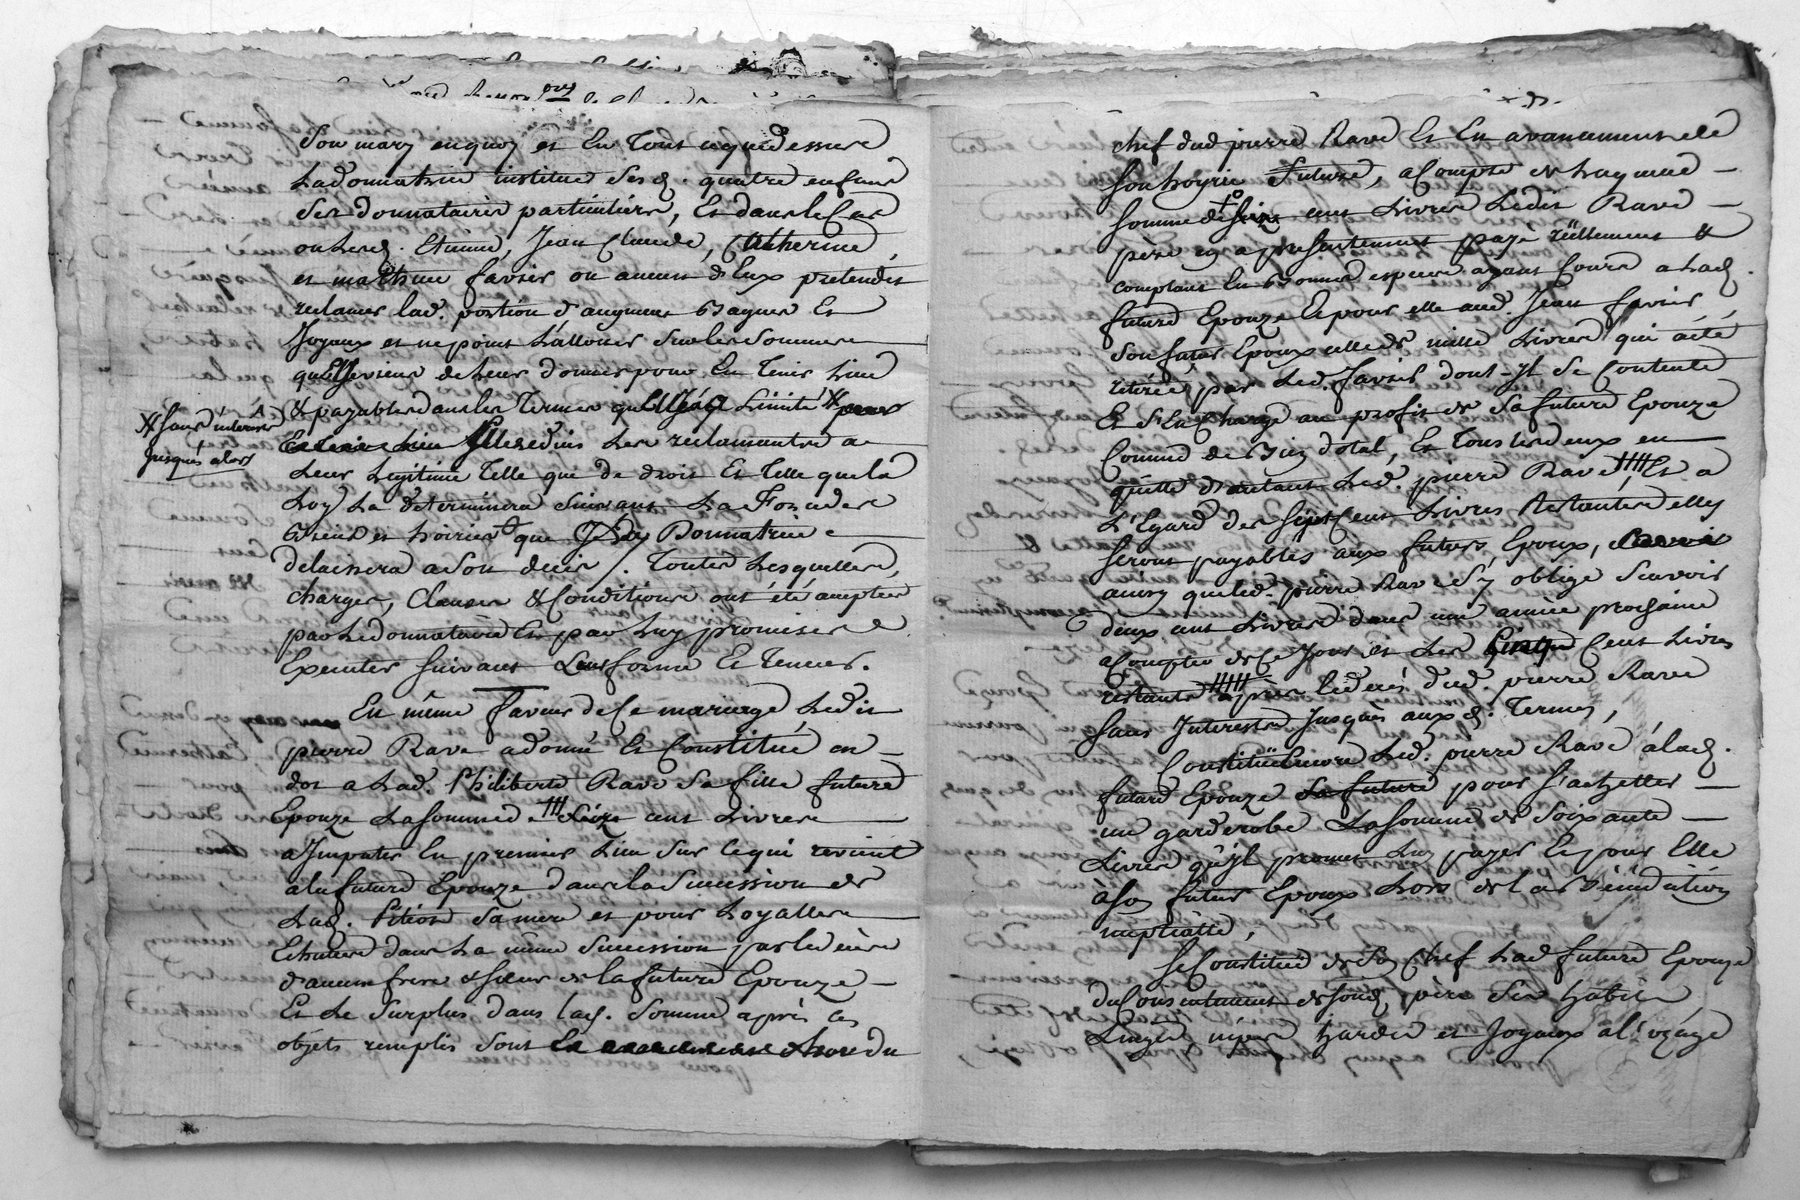 Son mary en quoy et En Tout ce que dessus
La donnatrice institue Sesd. quatre enfans
Ses donnataires particuliers, Et dans le Cas
ou Lesd. Etienne, Jean Claude, Catherine,
et mathieu favier ou aucuns d'Eux pretendit
reclamer lad. portion d'augment Bagues Et
Joyaux et ne point L'allouer Sur les Sommes
qu'Elle vient de Leur donner pour En Tenir Lieu
& payables dans les Termes qu'Elle a Limité
sans interest
jusques alors
Elle reduit Les reclamantes a
Leur Legitime Telle que de droit Et Telle que la
Loy La determinera Suivant La Force des
Biens et hoirie que Lad. Donnatrice
delaissera a Son deces /. Toutes Lesquelles
charges, Clauses & Conditions ont été acceptées
par Le donnataire Et par Luy promises
Executer suivant Leur forme Et Teneur.
En même Faveur de Ce mariage Ledit
pierre Rave a donné Et Constitué en
dot a Lad. Philiberte Rave Sa fille future
Epouze La somme de Seize cent Livres
a Imputer En premier Lieu Sur ce qui revient
a la future Epouze dans la Sucession de
Lad. Sa mere et pour Loyalles
Echutes dans La même Sucession par le deces
d'aucuns frere & sœur de la future Epouze
Et Le Surplus dans lad. Somme après ces
objets remplis Sont hors du
chef dud pierre Rave Et En avancement de
son hoyrie future, a Compte de Laquelle
somme de Seize cent Livres Ledit Rave
père en a presentement payé réellement &
comptant En Bonnes especes ayant Cours a Lad.
future Epouze Et pour elle aud. Jean favier
Son futur Epoux celle de mille Livres qui a été
retirée par Led. favier dont Il Se Contente
Et S'En Charge au profit de Sa future Epouze
Comme de Bien dotal, Et Tous les deux en
quitte d'autant Led. pierre Rave, Et a
L'Egard des Sept Cent Livres Restantes elles
seront payables aux futurs Epoux,
ainsy que led. pierre Rave S'y oblige Scavoir
deux cent Livres dans une année prochaine
a Compter de Ce Jour et Les Cinq Cent Livres
restantes après le deces dud. pierre Rave
sans Interests Jusques auxd. Termes,
Constitue Encore Led. pierre Rave a lad.
future Epouze Sa future pour S'achetter
une garderobe La somme de Soixante
Livres qu'Il promet Luy payer Et pour Elle
à son futur Epoux Lors de la Bénédiction
nuptialle,
Se Constitue de Son Chef Lad future Epouze
du Consentement de Sond. père Ses habits
Linges, nipes hardes et Joyaux a l'uzage